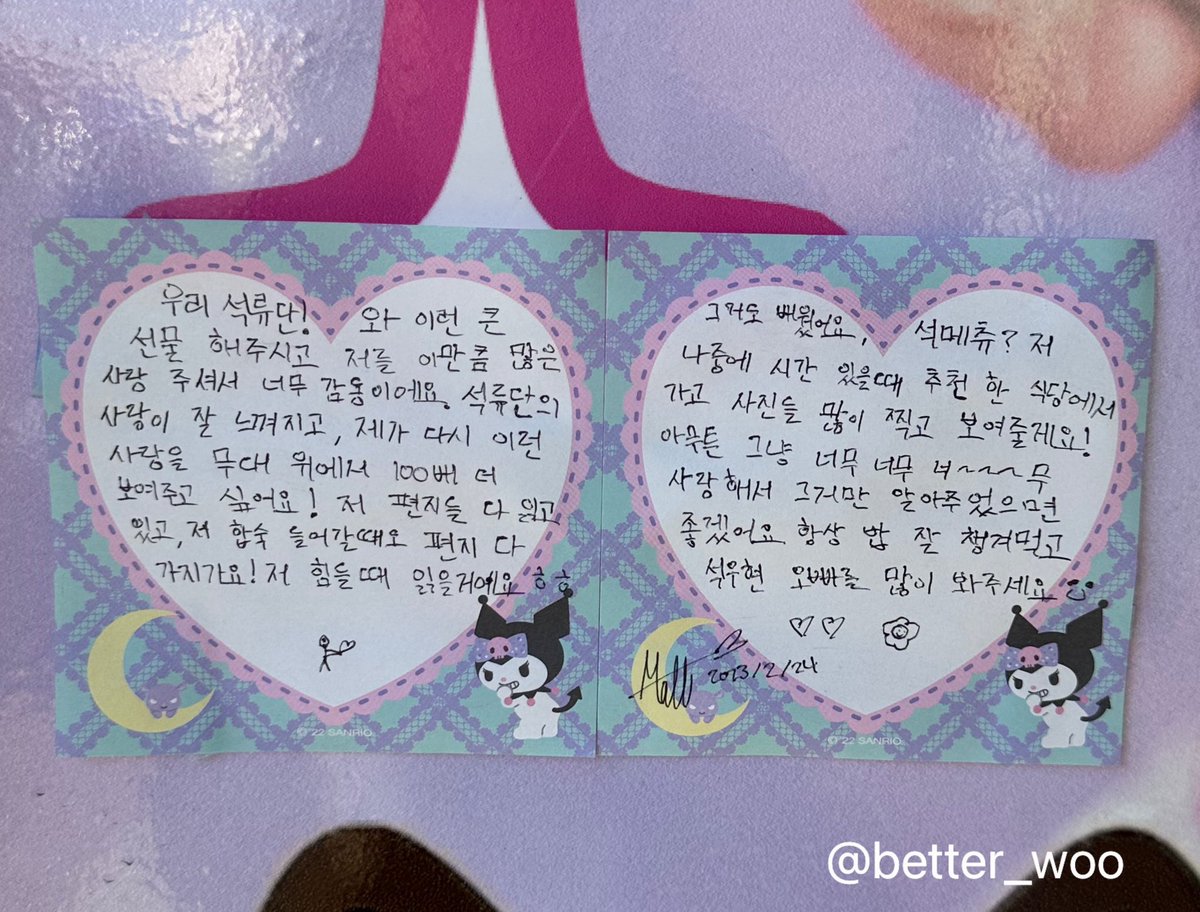 우리 석류단! 와 이런 큰
선물 해주시고 저를 이만큼 많은
사랑 주셔서 너무 감동이에요. 석류단의
사랑이 잘 느껴지고, 제가 다시 이런
사랑을 무대 위에서 100배 더
보여주고 싶어요! 저 편지들 다 읽고
있고, 저 합숙 들어갈때도 편지 다
가지가요! 저 힘들때 읽을거에요 ㅎㅎ
© '22 SANRIO
그거도 배웠어요, 석메츄? 저
나중에 시간 있을때 추천 한 식당에서
가고 사진들 많이 찍고 보여줄게요!
아무튼 그냥 너무 너무 너~~~무
사랑해서 그거만 알아주었으면
좋겠어요 항상 밥 잘 챙겨먹고
석우현 오빠를 많이 봐주세요
2023/2/24
© '22 SANRIO
@better_woo